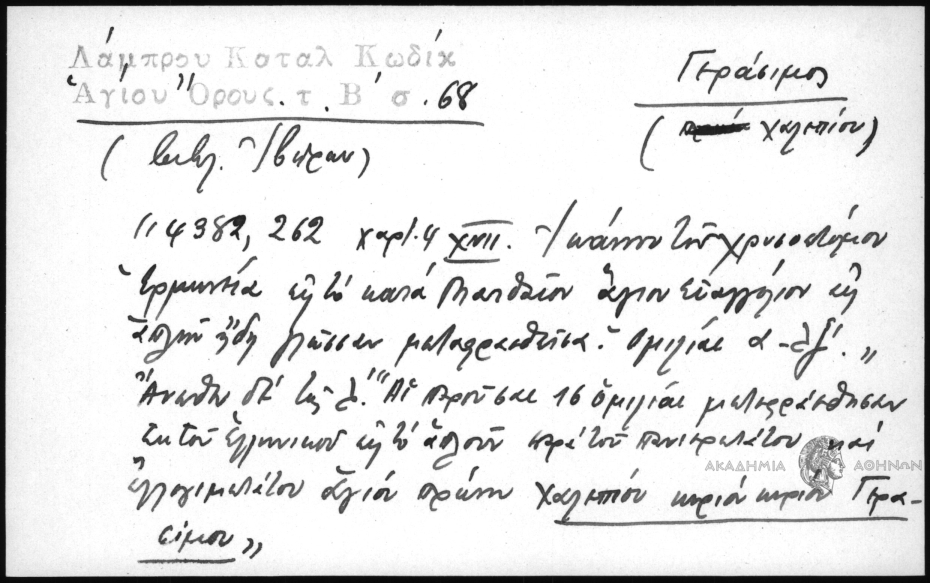 Λάμπρου Καταλ Κωδίκ
Ἁγίου Ὄρους. τ. Β΄ σ. 68
Γεράσιμος
(Χαλεπίου)
(βιβλ. Ἰβήρων)
"4382, 262 χαρτ. 4 XVII. Ἰωάννου τοῦ Χρυσοστόμου
Ἑρμηνεία εἰς τὸ κατὰ Ματθαῖον ἅγιον Εὐαγγέλιον εἰς
ἁπλῆν ἤδη γλῶσσαν μεταφρασθεῖσα. Ὁμιλίαι α-λζ΄."
Ἄνωθεν δὲ τῆς λ΄. "Αἱ παροῦσαι 16 ὁμιλίαι μετεφράσθησαν
ἐκ τοῦ Ἑλληνικοῦ εἰς τὸ ἁπλοῦν παρὰ τοῦ πανιερωτάτου καὶ
ἐλλογιμωτάτου ἁγίου πρώην Χαλεπίου κυρίου κυρίου Γερα-
σίμου"
ΑΚΑΔΗΜΙΑ ΑΘΗΝΩΝ